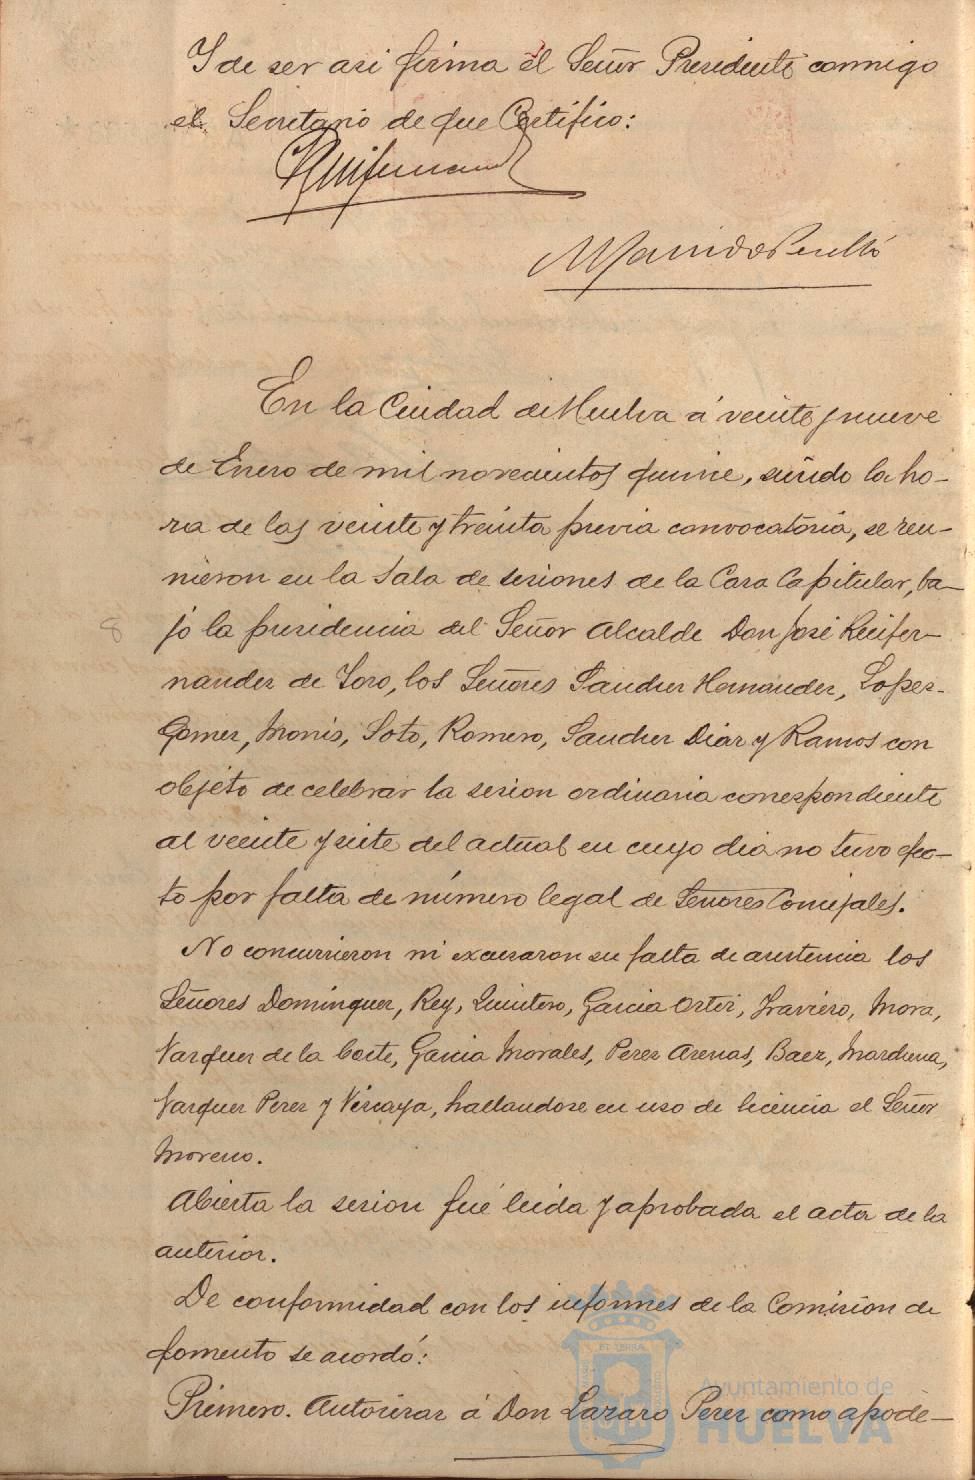 Y de ser asi firma el Señor Presidente conmigo
el Secretario de que Certifico:
En la Ciudad de Huelva á veinte y nueve
de Enero de mil novecientos quince, siendo la ho-
ra de las veinte y treinta previa convocatoria, se reu-
nieron en la Sala de sesiones de la Casa Capitular, ba-
8
jo la presidencia del Señor Alcalde Don José Kuifer-
nandez de Toro, los Señores Sanchez Hernandez, Lopez-
Gomez, Monis, Soto, Romero, Sanchez Diaz y Ramos con
objeto de celebrar la sesion ordinaria correspondiente
al veinte y siete del actual en cuyo dia no tuvo efec-
to por falta de número legal de Señores Concejales.
No concurrieron ni excusaron su falta de asistencia los
Señores Dominguez, Rey, Quintero, Garcia Ortiz, Traviero, Mora,
Vazquez de la Corte, Garcia Morales, Perez Arenas, Baez, Marchena,
Vazquez Perez y Vizcaya, hallandose en uso de licencia el Señor
Moreno.
Abierta la sesion fué leida y aprobada el acta de la
anterior.
De conformidad con los informes de la Comision de
fomento se acordó:
Primero. Autorizar á Don Lazaro Perez como apode-
Ayuntamiento de
HUELVA